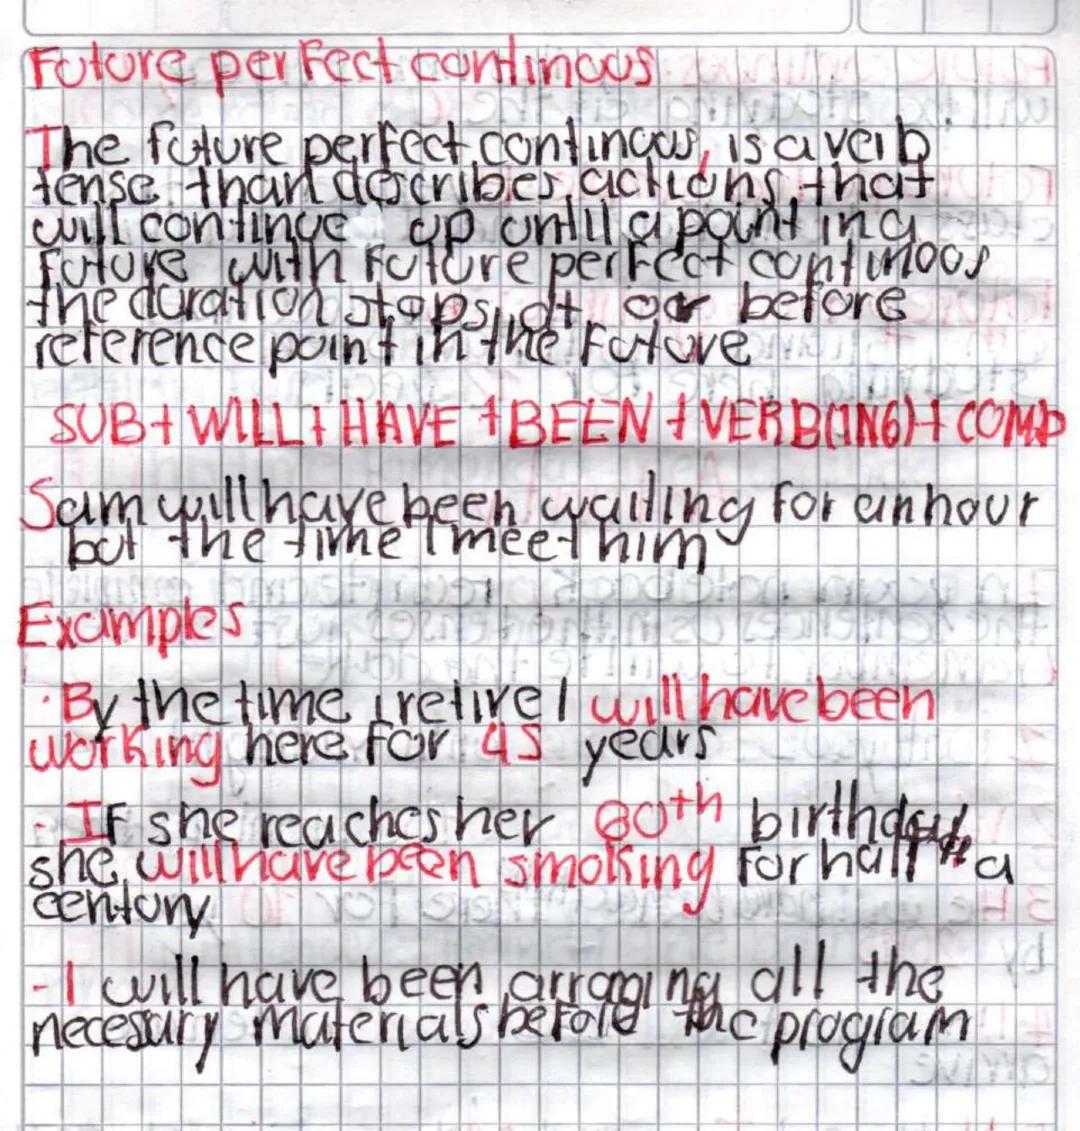 Future perfect continous
The future perfect continous, is a verb
tense than describes actions that
will continue up until a point in a
future with future perfect continuos
the duration stops at or before
reference point in the future
SUB+WILL+HAVE+BEEN+VERB(ING)+COMP
Sam will have been waiting for an hour
but the time I meet him
Examples
· By the time i retire I will have been
working here for 45 years
- If she reaches her 60th birthday
she will have been smoking for half a
century
- I will have been arranging all the
necesary materials before the program